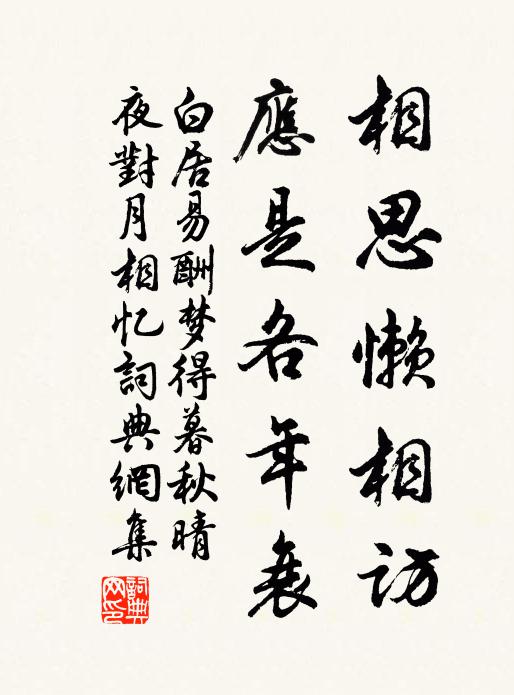 相思懶相訪
應是各年衰
白居易酬梦得暮秋晴
夜對月相忆詞典網集
詞典網印